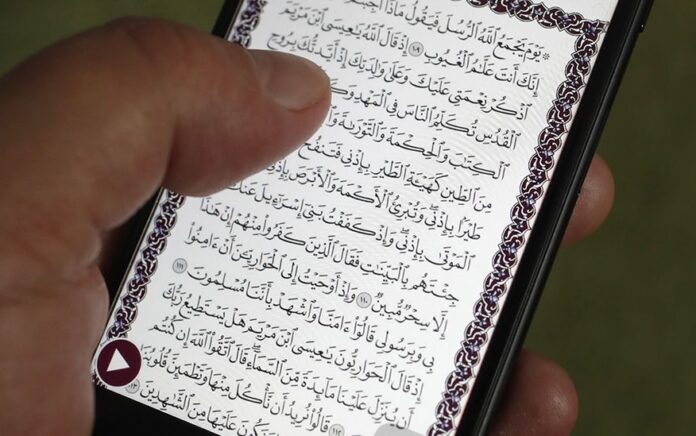 يَوْمَ يَجْمَعُ ٱللَّهُ ٱلرُّسُلَ فَيَقُولُ مَاذَآ أُجِبْتُمْ
إِنَّكَ أَنتَ عَلَّٰمُ ٱلْغُيُوبِ ١٠٩ إِذْ قَالَ ٱللَّهُ يَٰعِيسَى ٱبْنَ مَرْيَمَ
ٱذْكُرْ نِعْمَتِي عَلَيْكَ وَعَلَىٰ وَٰلِدَتِكَ إِذْ أَيَّدتُّكَ بِرُوحِ
ٱلْقُدُسِ تُكَلِّمُ ٱلنَّاسَ فِي ٱلْمَهْدِ
ٱلْكِتَٰبَ وَٱلْحِكْمَةَ وَٱلتَّوْرَىٰةَ
مِنَ ٱلطِّينِ كَهَيْـَٔةِ ٱلطَّيْرِ بِإِذْنِي فَتَنفُخُ
طَيْرًۢا بِإِذْنِي وَتُبْرِئُ ٱلْأَكْمَهَ وَٱلْأَبْرَصَ بِإِذْنِي
ٱلْمَوْتَىٰ بِإِذْنِي وَإِذْ كَفَفْتُ بَنِيٓ إِسْرَٰٓءِيلَ عَنكَ
جِئْتَهُم بِٱلْبَيِّنَٰتِ فَقَالَ ٱلَّذِينَ كَفَرُواْ مِنْهُمْ إِنْ هَٰذَآ
إِلَّا سِحْرٌ مُّبِينٌ ١١٠ وَإِذْ أَوْحَيْتُ إِلَى ٱلْحَوَارِيِّۦنَ أَنْ ءَامِنُواْ
بِي وَبِرَسُولِي قَالُوٓاْ ءَامَنَّا وَٱشْهَدْ بِأَنَّنَا مُسْلِمُونَ ١١١
إِذْ قَالَ ٱلْحَوَارِيُّونَ يَٰعِيسَى ٱبْنَ مَرْيَمَ هَلْ يَسْتَطِيعُ رَبُّكَ
أَن يُنَزِّلَ عَلَيْنَا مَآئِدَةً مِّنَ ٱلسَّمَآءِ قَالَ ٱتَّقُواْ ٱللَّهَ إِن كُنتُم
١١٢ قَالُواْ نُرِيدُ أَن نَّأْكُلَ مِنْهَا وَتَطْمَئِنَّ قُلُوبُنَا
عَلَيْهَا مِنَ ٱلشَّٰهِدِينَ ١١٣